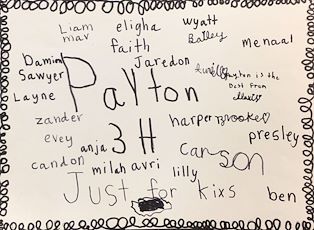 Liam
mav
eligha
wyatt
Bailey
faith
menaal
Damin
Jaredon
Sawyer
Payton is the
best from
Layne
Payton
zander
harper
Brooke
evey
anja
3H
presley
candon
milah
avri
lilly
carson
Just for kixs
ben